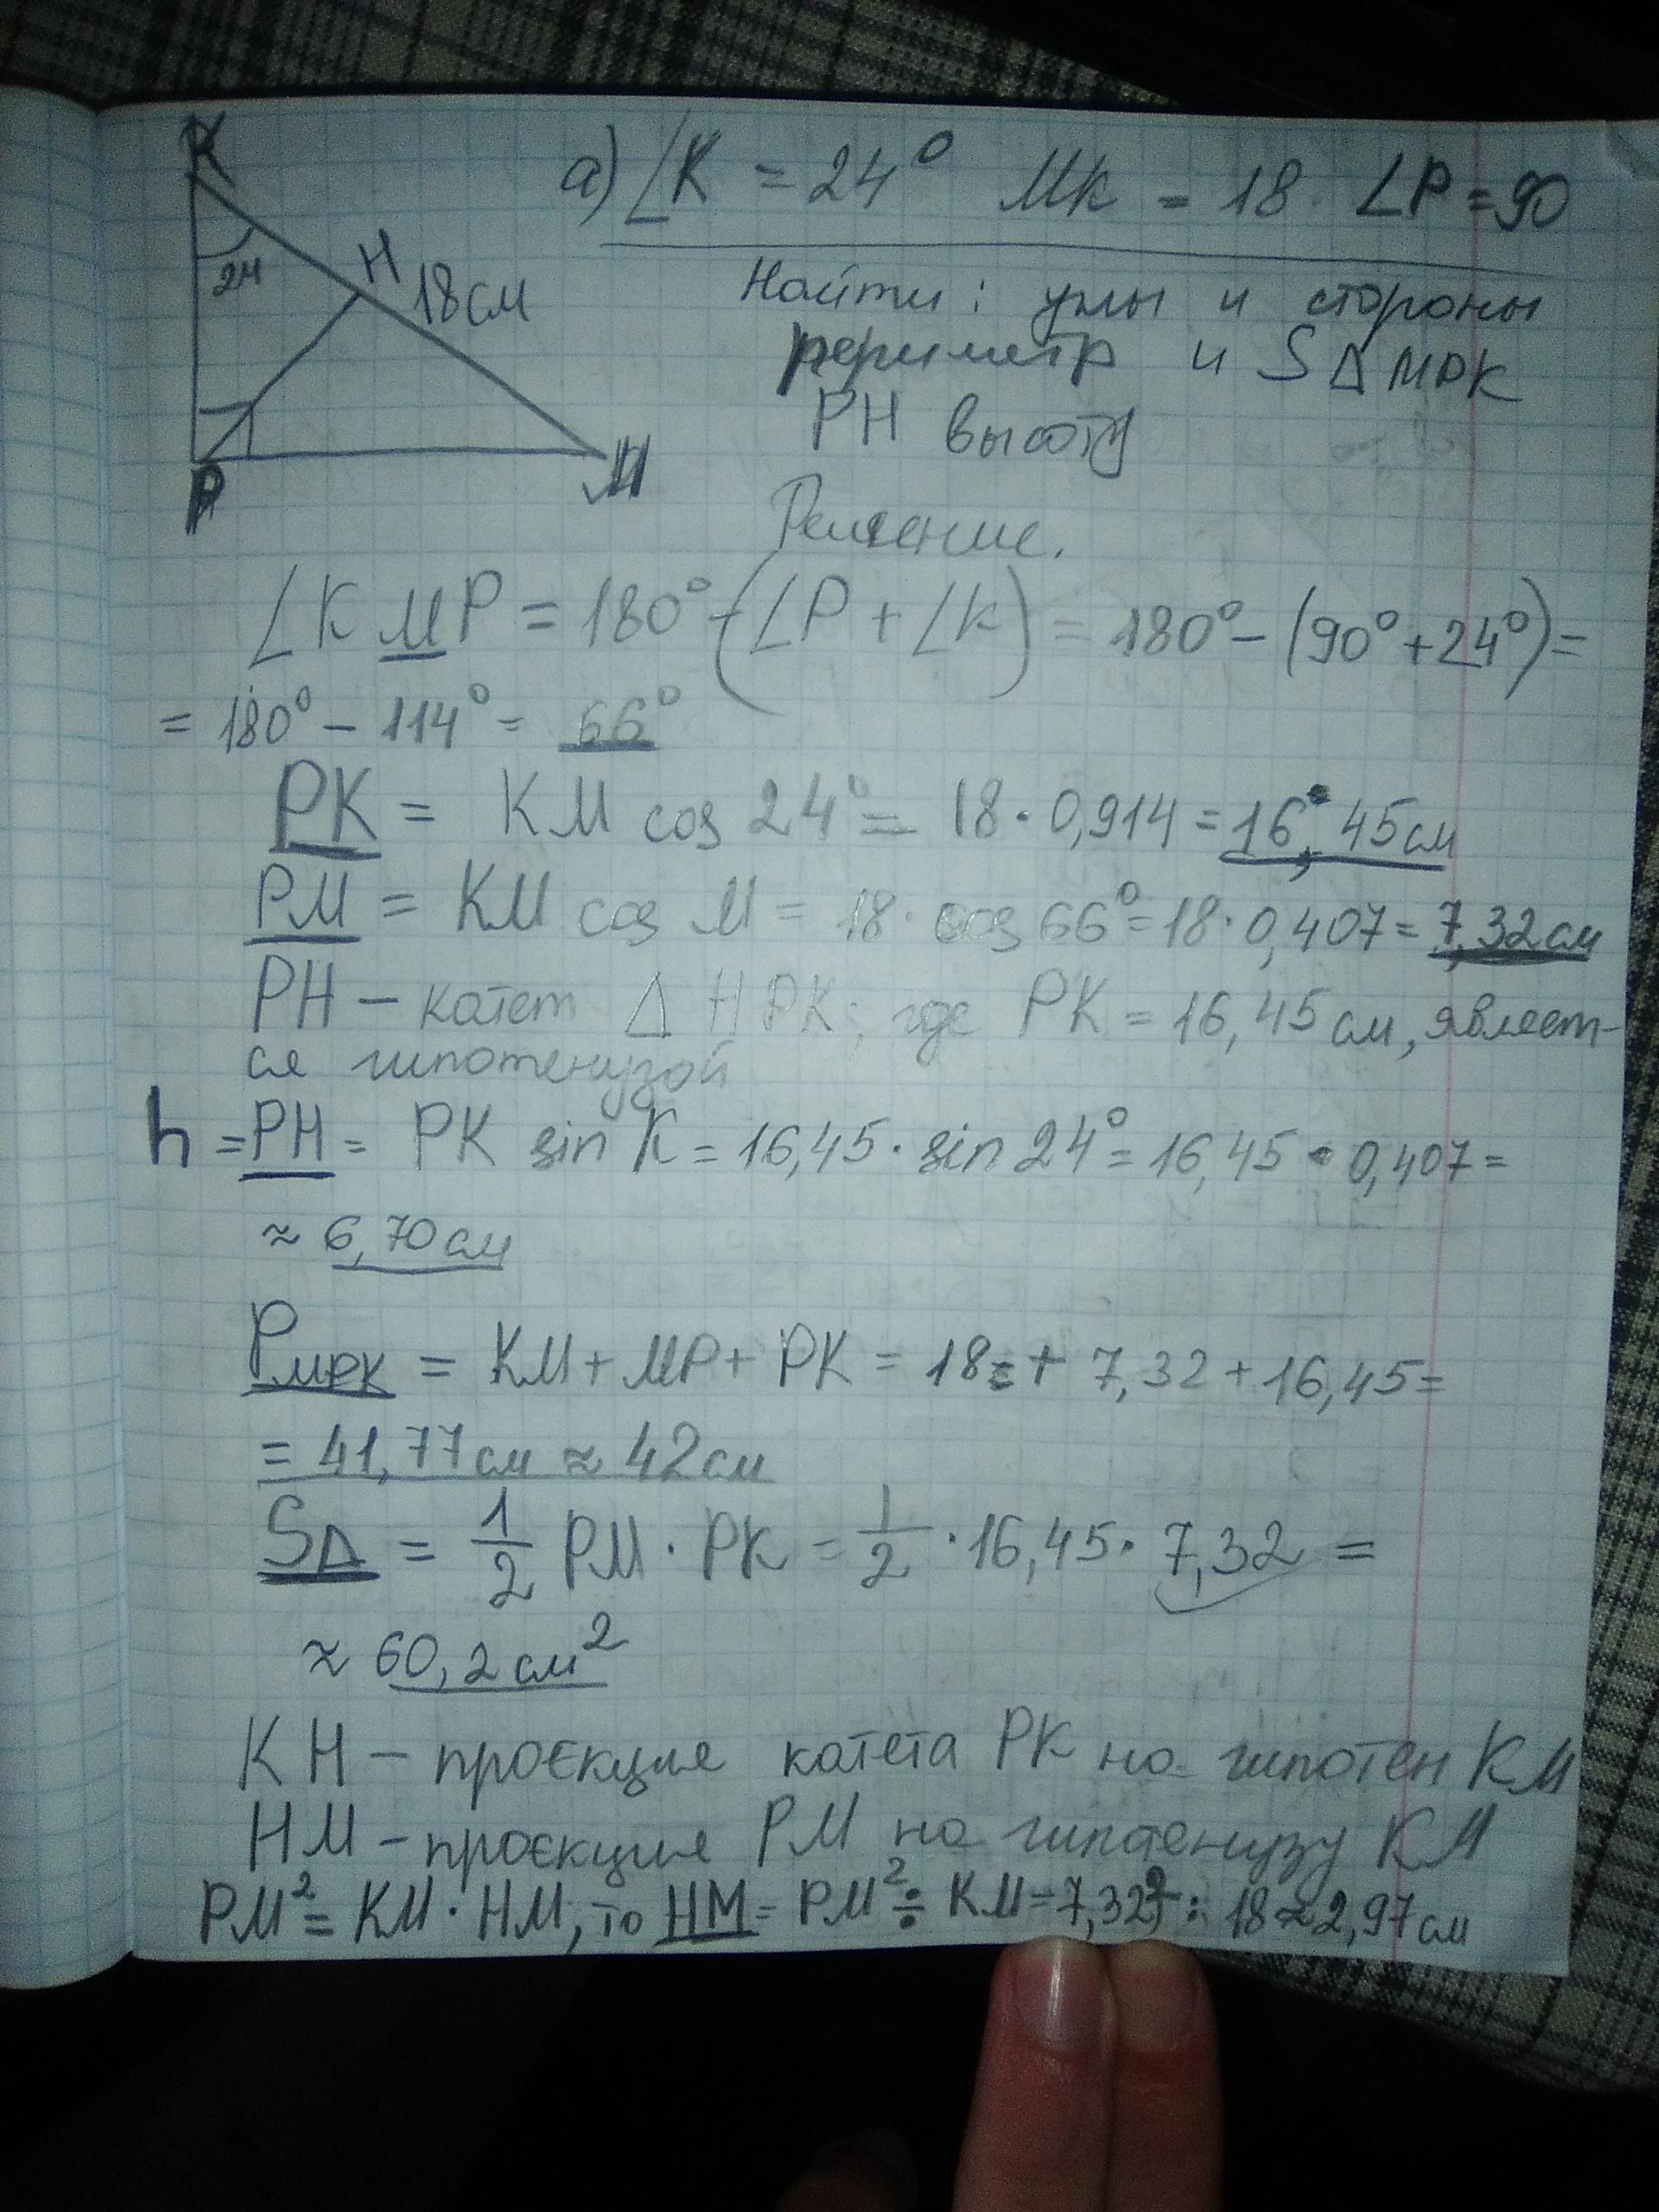 K
a) ∠K = 24° MK = 18. ∠P = 90
24
H
18 см
Найти: углы и стороны
периметр и S Δ MPK
PH высоту
P
M
Решение.
∠KMP = 180° - (∠P + ∠K) = 180° - (90° + 24°) =
= 180° - 114° = 66°
PK = KM cos 24° = 18 · 0,914 = 16,45 см
PM = KM cos M = 18 · cos 66° = 18 · 0,407 = 7,32 см
PH – катет Δ HPK; где PK = 16,45 см, являет-
ся гипотенузой
h = PH = PK sin K = 16,45 · sin 24° = 16,45 · 0,407 =
≈ 6,70 см
P MPK = KM + MP + PK = 18 = + 7,32 + 16,45 =
= 41,77 см ≈ 42 см
SΔ = 1/2 PM · PK = 1/2 · 16,45 · 7,32 =
≈ 60,2 см²
KH – проєкция катета PK на гипотен KM
HM – проєкция PM на гипотенузу KM
PM² = KM · HM, то HM = PM² ÷ KM = 7,32² : 18 ≈ 2,97 см